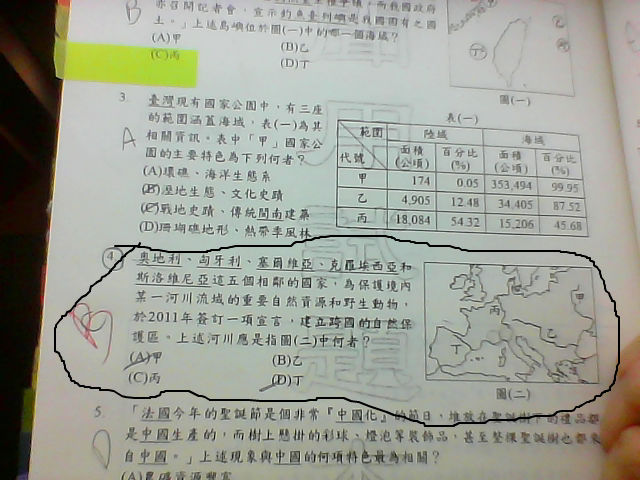 亦召開記者會，宣示釣魚臺列嶼是我國固有之國
土。」上述島嶼位於圖(一)中的哪一個海域？
(A)甲 (B)乙
(C)丙 (D)丁
圖(一)
B
3. 臺灣現有國家公園中，有三座
的範圍涵蓋海域，表(一)為其
相關資訊。表中「甲」國家公
園的主要特色為下列何者？
(A)環礁、海洋生態系
(B)溼地生態、文化史蹟
(C)戰地史蹟、傳統閩南建築
(D)珊瑚礁地形、熱帶季風林
A
表(一)
範圍 陸域 海域
代號 面積(公頃) 百分比(%) 面積(公頃) 百分比(%)
甲 174 0.05 353,494 99.95
乙 4,905 12.48 34,405 87.52
丙 18,084 54.32 15,206 45.68
4. 奧地利、匈牙利、塞爾維亞、克羅埃西亞和
斯洛維尼亞這五個相鄰的國家，為保護境內
某一河川流域的重要自然資源和野生動物，
於2011年簽訂一項宣言，建立跨國的自然保
護區。上述河川應是指圖(二)中何者？
(A)甲 (B)乙
(C)丙 (D)丁
甲
丙
乙
丁
圖(二)
5. 「法國今年的聖誕節是個非常『中國化』的節日，堆放在聖誕樹下的禮品都
是中國生產的，而樹上懸掛的彩球、燈泡等裝飾品，甚至整棵聖誕樹也都來
自中國。」上述現象與中國的何項特色最為相關？
(A)農礦資源豐富